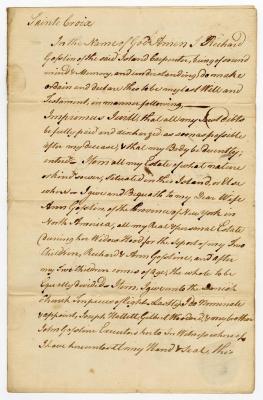 Sainte Croix
In the Name of God Amen I Richard
Gosline of the said Island Carpenter, being of sound
mind & Memory, and understanding do make
ordain and declare this to be my last Will and
Testament, in manner following
Imprimus I will that all my Just Debts
be fully paid and discharged as soon as possible
after my decease & that my Body be decently
Item all my Estate of what nature
or kind soever, Situated in this Island, or else
where I give and Bequeath to my Dear Wife
Ann Gosline of the Province of New York in
North America, all my Real & personal Estate
during her Widow Hood for the Suport of my Two
Children, Richard & Ann Gosline, and after
my Two Children comes of Age, the whole to be
Equally divided. Item I give unto the Danish
Church Six pieces of Eight. Lastly I do Nominate
& appoint Joseph Hallett, Gilbert and my brother
John Gosline Executors hereto In Witness whereof
I have hereunto set my Hand & Seal this